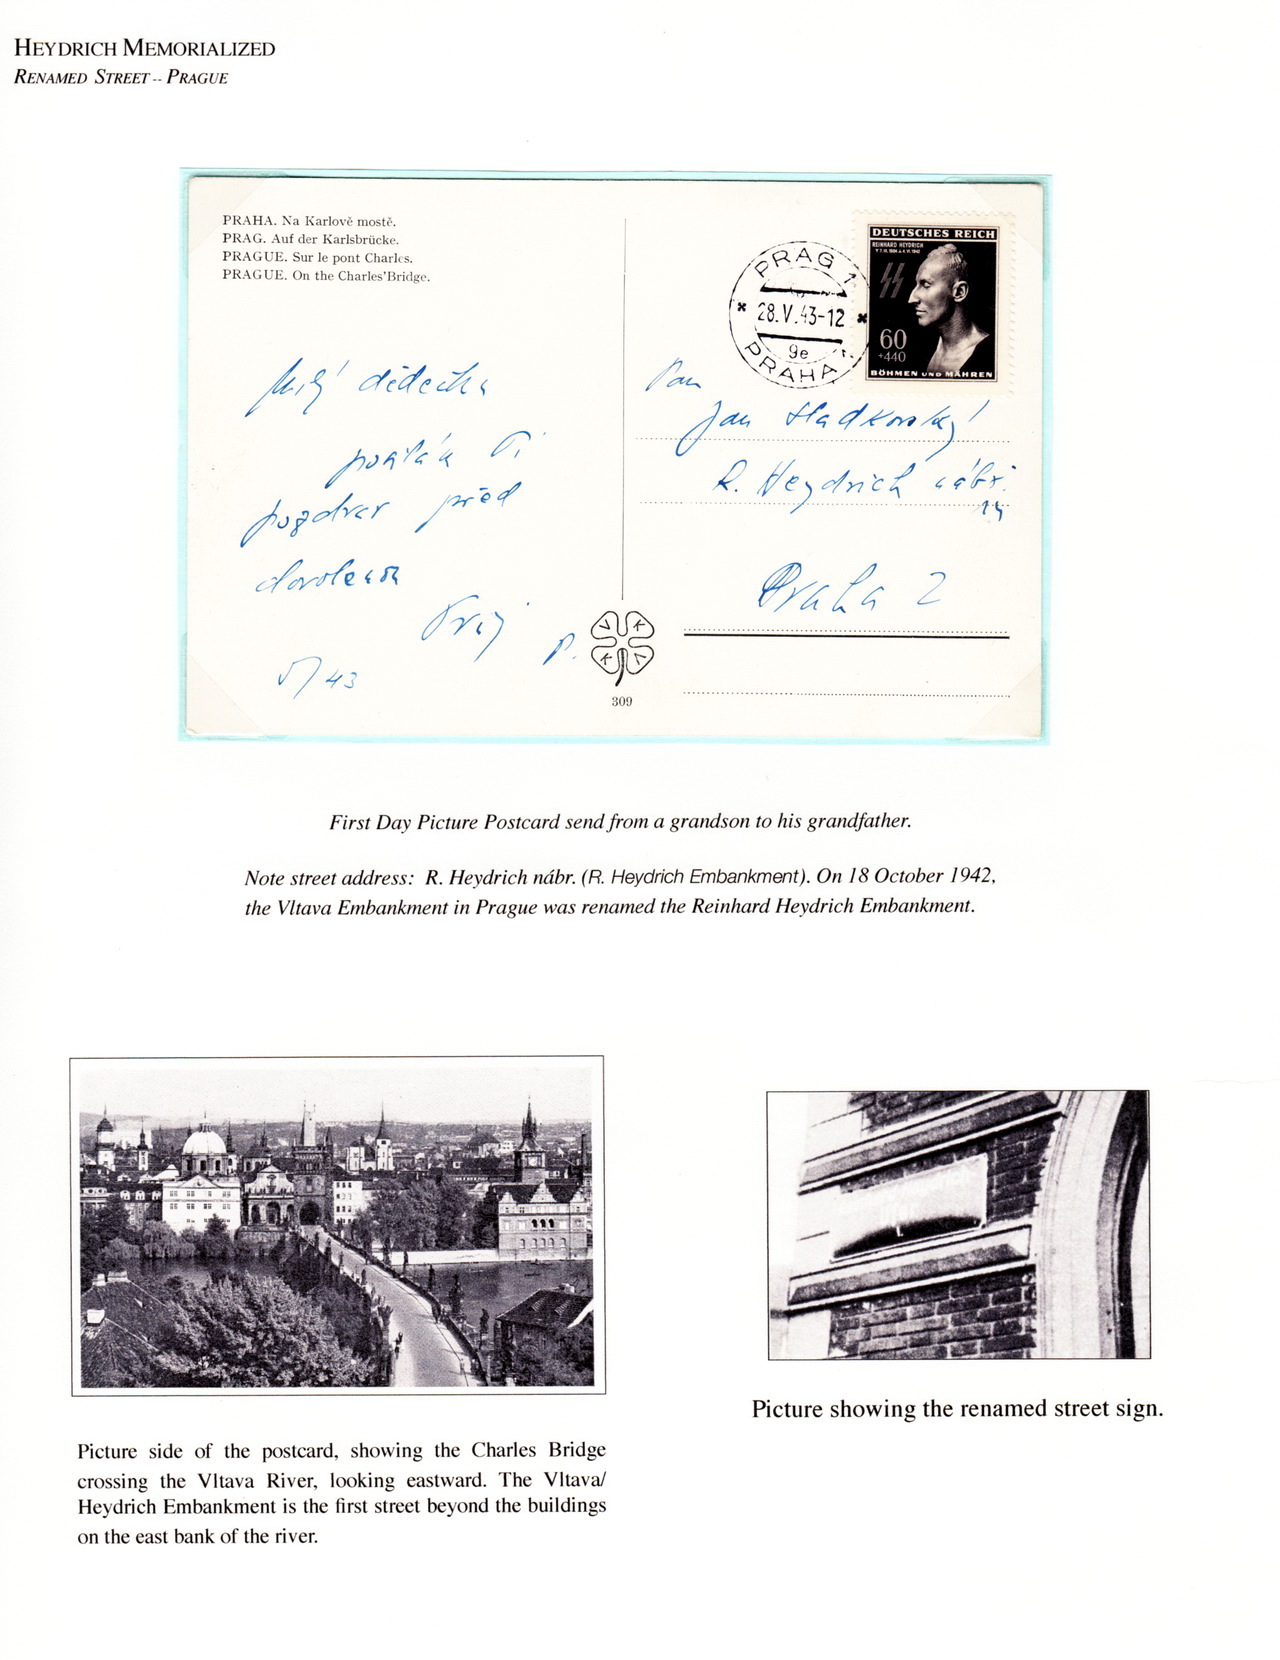 HEYDRICH MEMORIALIZED
RENAMED STREET -- PRAGUE
PRAHA. Na Karlově mostě.
PRAG. Auf der Karlsbrücke.
PRAGUE. Sur le pont Charles.
PRAGUE. On the Charles'Bridge.
PRAG 1
28.V.43-12
9e
PRAHA
DEUTSCHES REICH
REINHARD HEYDRICH
60
+440
BÖHMEN UND MÄHREN
Milý dědečku
posílám Ti
pozdrav před
dovolenou
Tvůj P.
V/43
Pan
Jan Hladkovský
R. Heydrich nábř.
14
Praha 2
V K
K A
309
First Day Picture Postcard send from a grandson to his grandfather.
Note street address: R. Heydrich nábr. (R. Heydrich Embankment). On 18 October 1942,
the Vltava Embankment in Prague was renamed the Reinhard Heydrich Embankment.
Picture showing the renamed street sign.
Picture side of the postcard, showing the Charles Bridge
crossing the Vltava River, looking eastward. The Vltava/
Heydrich Embankment is the first street beyond the buildings
on the east bank of the river.